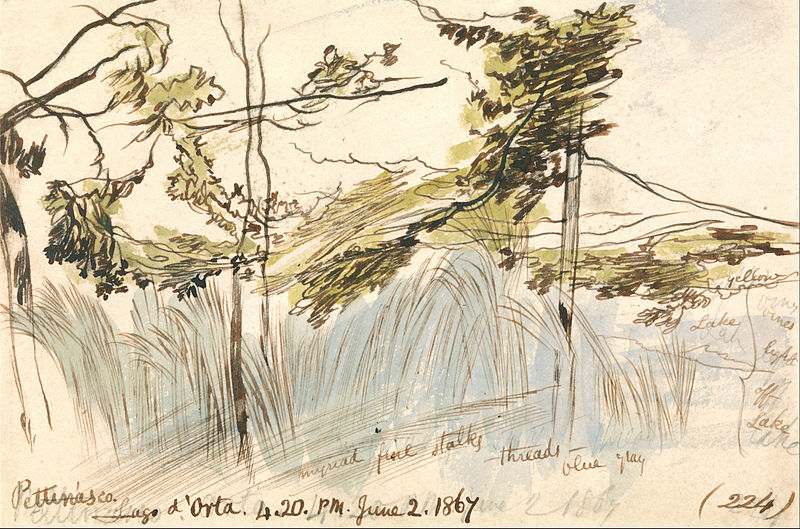 yellow
Lake
vines
light
off
Lake
myriad fine stalks - threads - blue gray
Pettenasco.
Lago d'Orta. 4.20. P.M. June 2. 1867
(224)